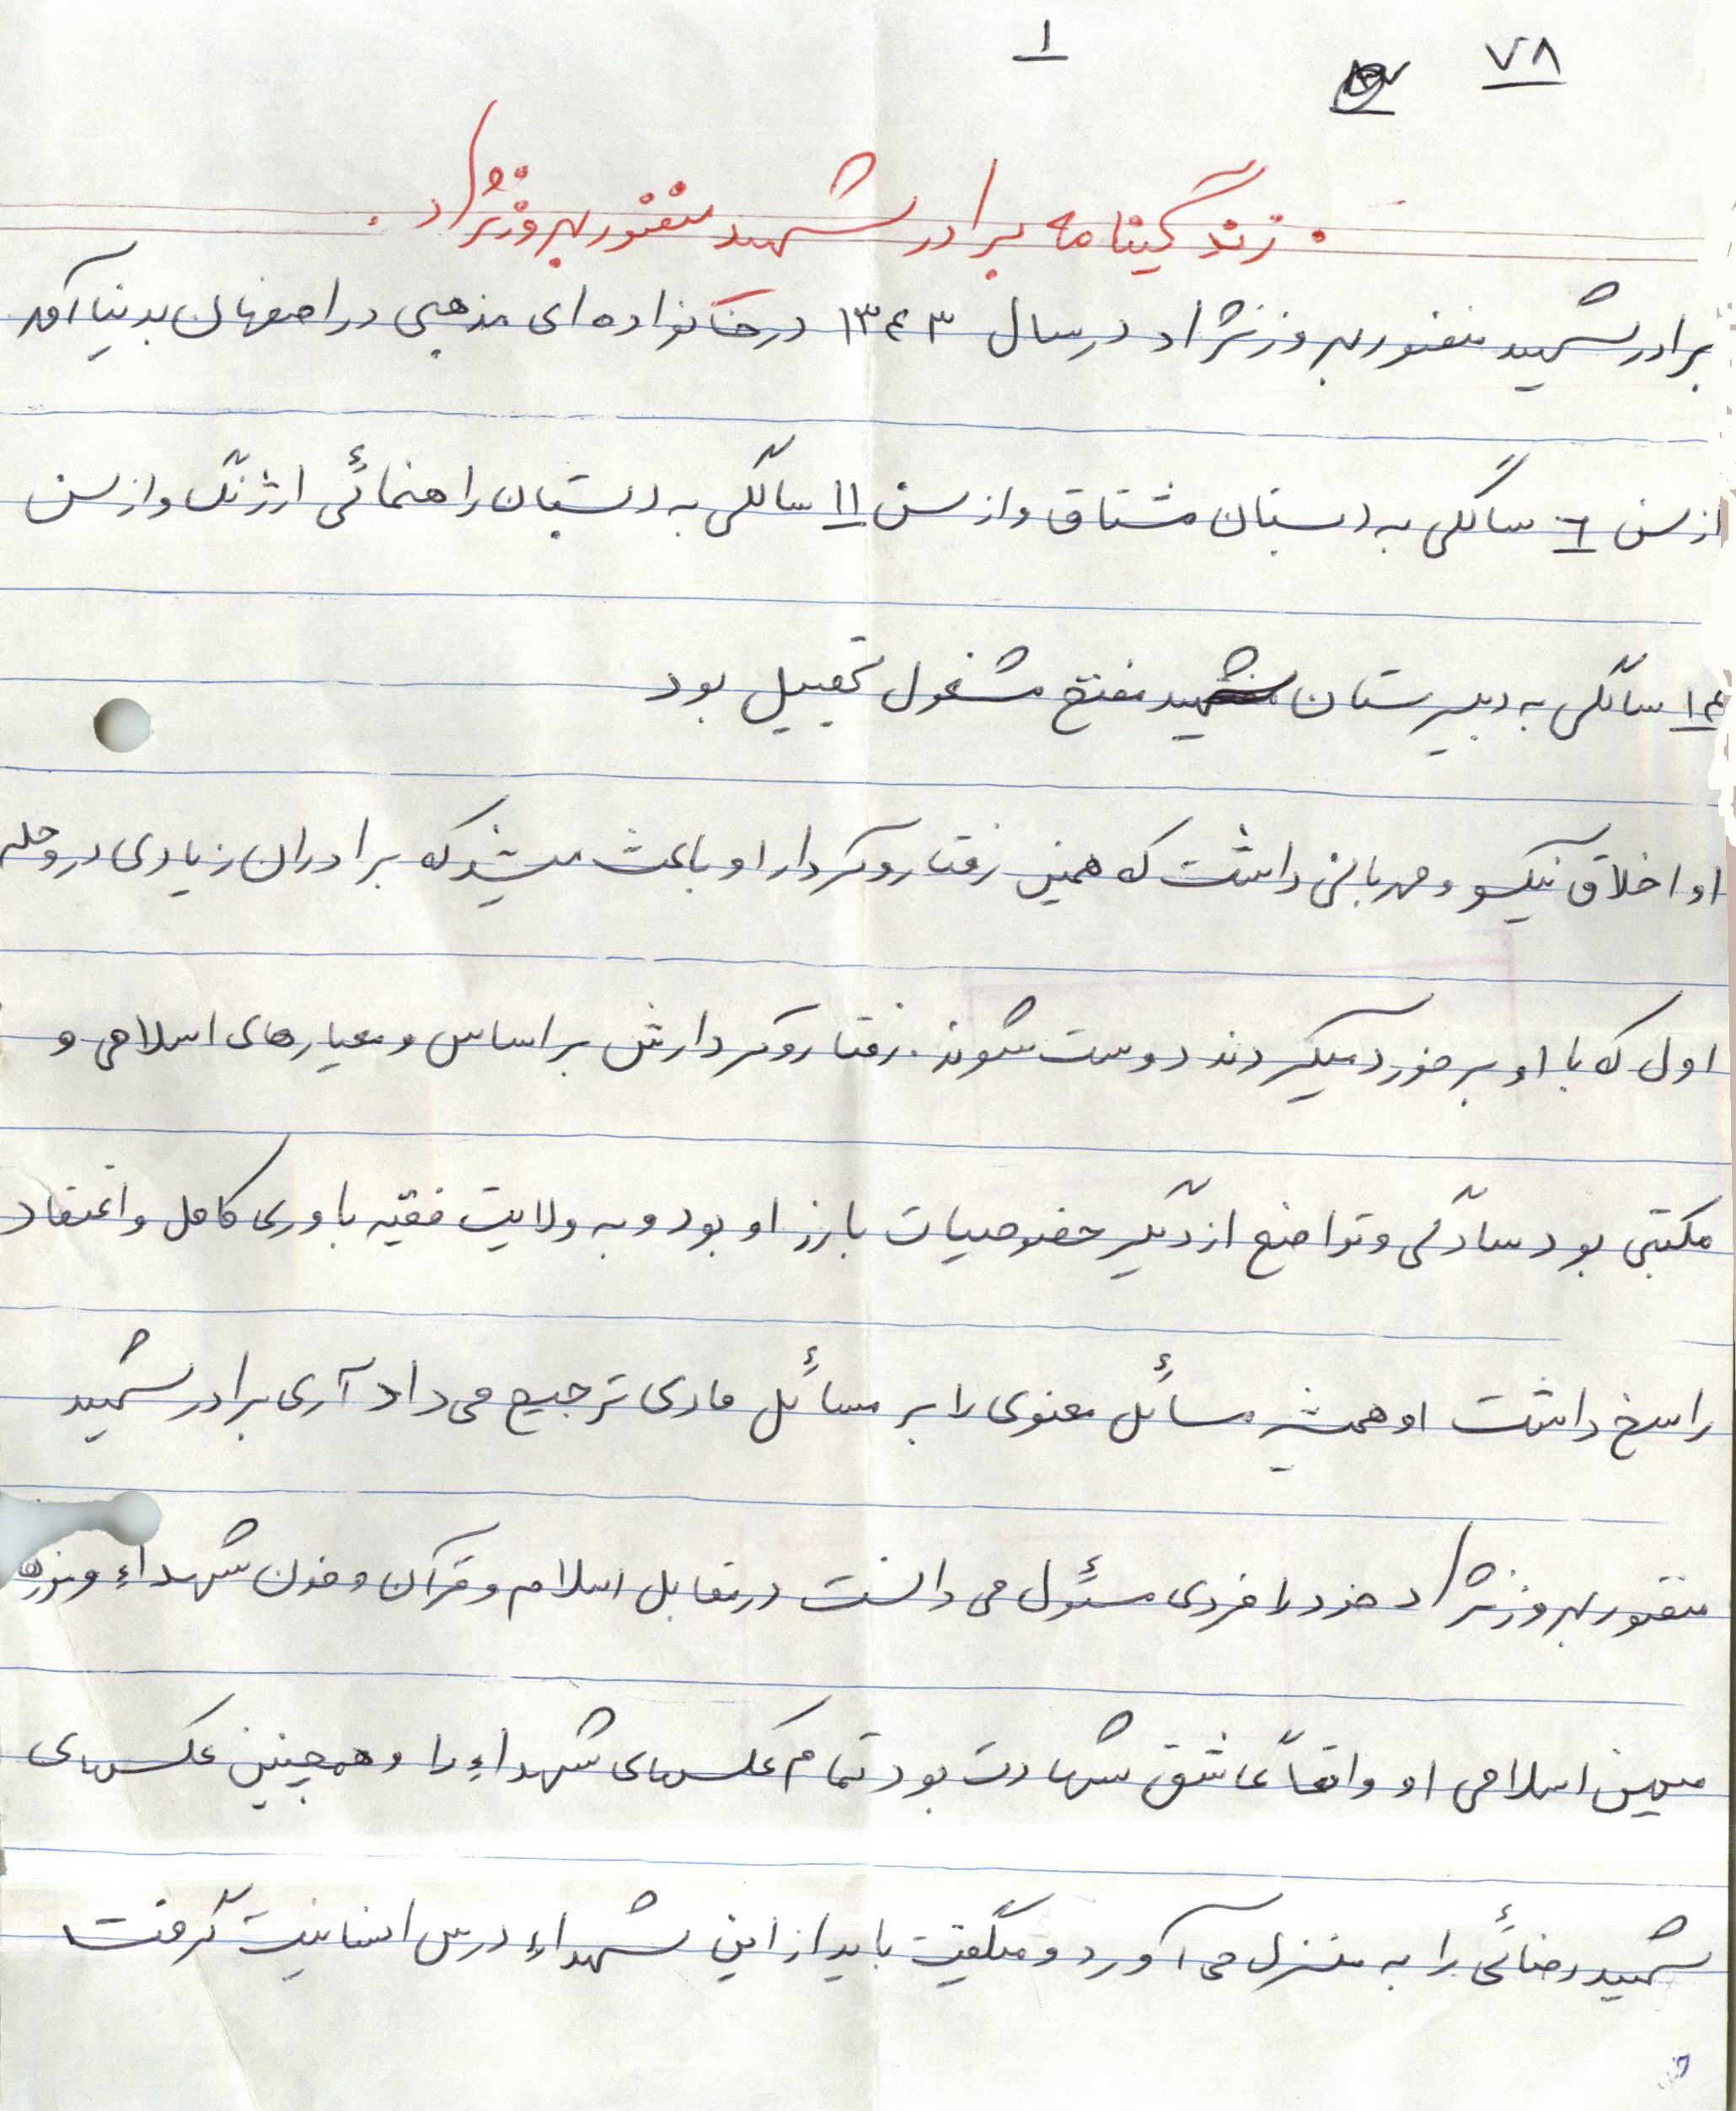 ۱
۷۸
۰ زندگینامه برادر شهید منصور بهروزنژاد .
برادر شهید منصور بهروزنژاد در سال ۱۳۴۳ در خانواده ای مذهبی در اصفهان بدنیا آمد
از سن ۶ سالگی به دبستان مشتاق و از سن ۱۱ سالگی به دبستان راهنمائی ارژنگ و از سن
۱۴ سالگی به دبیرستان شهید مفتح مشغول تحصیل بود
او اخلاق نیکو و مهربانی داشت که همین رفتار و کردار او باعث میشد که برادران زیادی در وحله
اول که با او برخورد میکردند دوست شوند. رفتار و کردارش بر اساس و معیارهای اسلامی و
مکتبی بود سادگی و تواضع از دیگر خصوصیات بارز او بود و به ولایت فقیه باوری کامل و اعتقاد
راسخ داشت او همیشه مسائل معنوی را بر مسائل مادی ترجیح می داد آری برادر شهید
منصور بهروزنژاد خود را فردی مسئول می دانست در مقابل اسلام و قرآن و خون شهداء و
میهن اسلامی او واقعاً عاشق شهادت بود تمام عکسهای شهداء را و همچنین عکسهای
شهید رضائی را به منزل می آورد و میگفت باید از این شهداء درس انسانیت گرفت